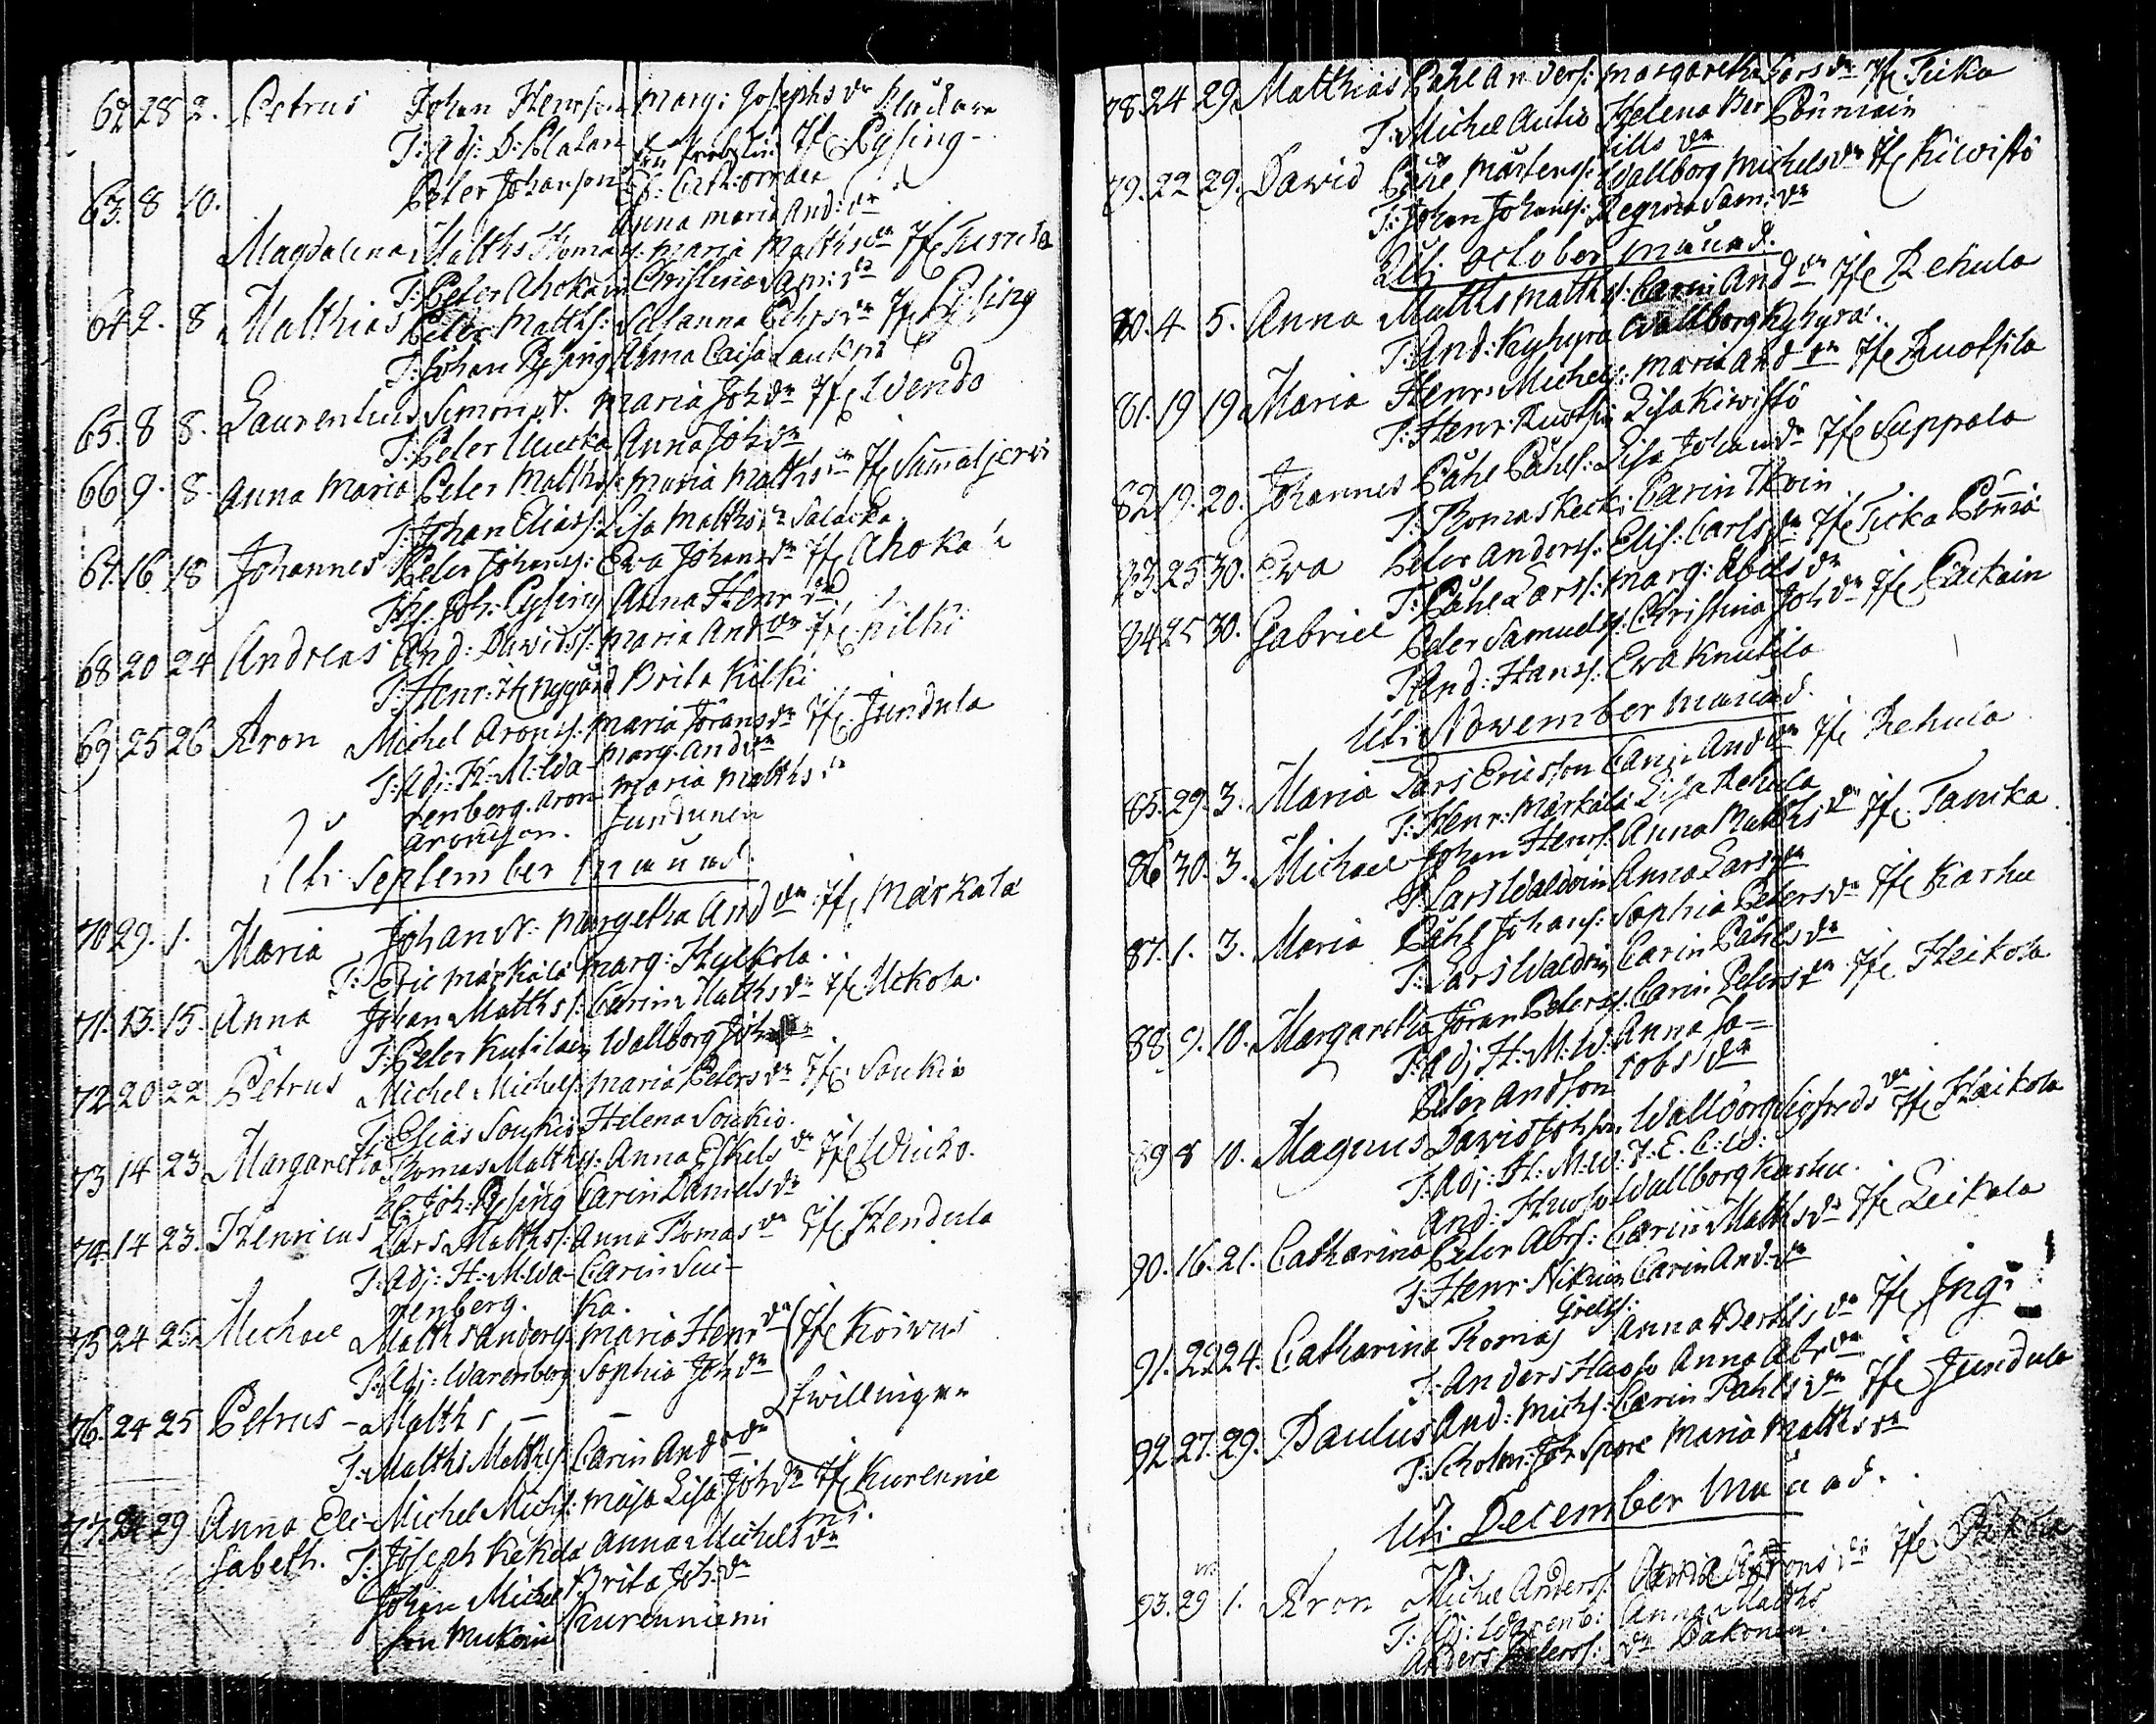 62 28 2. Petrus Johan Henrsson Marg: Josephs dr
T: Adj: D: Platan ffr Rysing
63. 8 10. Peter Johanson
Anna Maria And: dr
Magdalena Matths Thomas: Maria Matths dr ffr
T: Peter Ahokain Christina Sam: dr
64 2. 8 Matthias Peter Matths: Susanna Pehrs dr ffr Rysing
T: Johan Rysing Anna Caisa Laukna
65. 8 8. Laurentius Simon N. Maria Joh dr ffr Wendo
T: Peter Uucka Anna Joh dr
66 9. 8. Anna Maria Peter Matths: Maria Matths dr ffr Samaljerwi
T: Johan Eliass: Lisa Matths dr Salacka
67. 16. 18 Johannes Peter Johans: Eva Johans dr ffr Ahoka
Joh: Rysing Anna Henr dr
68 20 24 Andreas And: Davids: Maria And dr ffr Kilki
T: Henr: Nygård Brita Kilki
69 25 26 Aron Michel Arons: Maria Jörans dr ffr Jundula
T: Adj: H: M: Wa- Marg. And dr
renberg. Aron Maria Matths dr
Aronsson. Jundunen
Uti September Månad.
70 29. 1. Maria Johan N: Margetha And dr ffr Märkälä
T: Eric Märkälä Marg: Kuckola.
71. 13. 15. Anna Johan Matths: Carin Matths dr ffr Uckola.
T: Peter Kutilain Wallborg Joh dr
72 20 22 Petrus Michel Michels: Maria Peters dr ffr Soukio
T: Elias Soukio Helena Soukio.
73 14 23 Margaretha Thomas Matths: Anna Eskels dr ffr Wicko.
Joh: Rysing Carin Daniels dr
74. 14 23. Henricus Lars Matths: Anna Thomas dr ffr Hendula
T: Adj: H: M: Wa- Carin Sui-
renberg. ka.
75 24 25 Michael Matths Anders: Maria Henr dr ffr Koiwus
T: Adj: Warenberg Sophia Joh dr
twillingar
76. 24 25 Petrus - Matths - -
T: Matths Matths: Carin And dr
77. 24 29 Anna Eli- Michel Mich: Maja Lisa Joh dr ffr Kurennie
sabeth. T: Joseph Kekela Anna Michels dr mi.
Johan Michel Brita Joh: dr
son Mukain Kurenniemi
78 24 29 Matthias Påhl Anders: Margaretha Lars dr ffr Ticka
T: Michel Autio Helena Ber Pönniäin
tills dr
79. 22 29. Dawid Påhl Mårtens: Wallborg Michels dr ffr Kiwistö
T: Johan Johans: Regina Sam: dr
Uti October Månad.
80. 4 5. Anna Matths Matths: Carin And dr ffr Rekula
T: And: Kyhyrä Wallborg Kyhyrä.
81. 19 19 Maria Henr: Michels: Maria And dr ffr Ruotsila
T: Henr: Ruotsin Lisa Kiwistö
82 19. 20. Johannes Påhl Påhls: Lisa Johans dr ffr Suppala
T: Thomas Kecki Carin Itkoin
83. 25 30. Ewa Peter Anders: Elis: Carls dr ffr Ticka Pönniä
T: Påhl Lars: Marg: Abels dr
84 25 30. Gabriel Peter Samuels: Christina Joh dr ffr Packain
T: And: Hans: Ewa Knutila
Uti November Månad.
85. 29. 3. Maria Lars Ericsson Carin And dr ffr Rekula
T: Henr: Märkälä Lisa Rekula
86 30. 3. Michael Johan Henrs: Anna Matths dr ffr Tanska
T: Lars Waldoin Anna Lars dr
87. 1. 3. Maria Påhl Johans: Sophia Peters dr ffr Karhu
T: Lars Waldoin Carin Påhls dr
88 9. 10. Margaretha Jöran Peters: Carin Peters dr ffr Heikola
T: Adj: H: M: W: Anna Ja-
Peter Andson cobs dr
89 8 10. Magnus David Johson Wallborg Sigfreds dr ffr Heikola
T: Adj: H: M: W: J. E. C. W:
And: Huoso Wallborg Karhu.
90. 16. 21. Catharina Peter Abrs: Carin Matths dr ffr Leikola
T: Henr Nikuin Carin And: dr
91. 22 24. Catharina Thomas Griels: Anna Bertils dr ffr Ingi
T: Anders Huoso Anna Abr dr
92. 27. 29. Paulus And: Michs: Carin Påhls dr ffr Jundula
T: Scholm: Joh Spore Maria Matths dr
Uti December Månad.
93. 29 1. Aron Michel Anders: Arons dr ffr
T: Adj: Warenb: Anna Matths
Anders Peters: dr Pakonen.